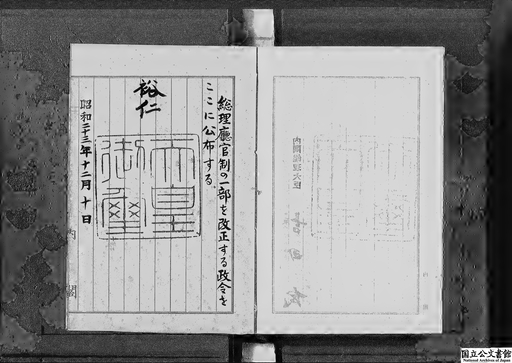 総理廳官制の一部を改正する政令を
ここに公布する
裕仁
天皇
御璽
昭和二十三年十二月十日
内閣
国立公文書館
National Archives of Japan